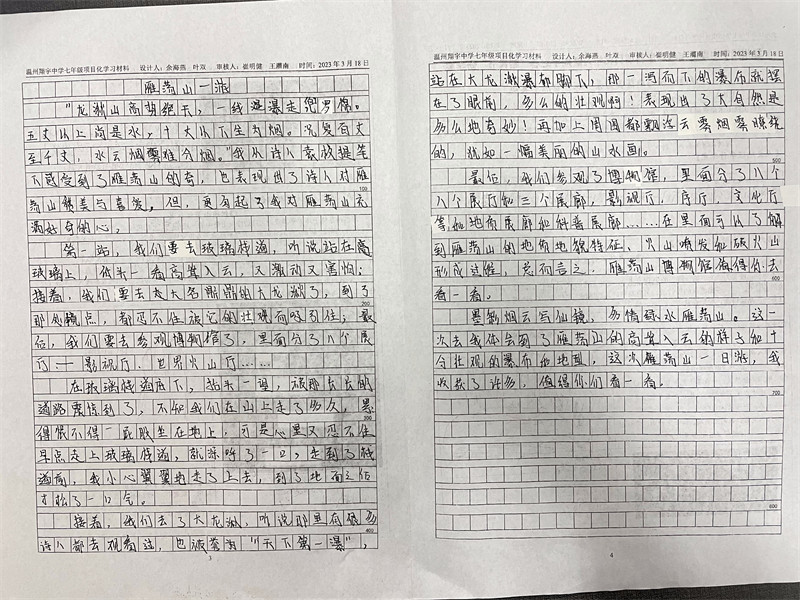 温州翔宇中学七年级项目化学习材料 设计人：余海燕 叶双 审核人：崔明健 王耀南 时间：2023年3月18日
雁荡山一游
“龙湫山高势绝天，一线瀑走兜罗绵。
五丈以上尚是水，十丈以下全为烟。况复百丈
至千丈，水云烟雾难分焉。”我从诗人袁枚提笔
下感受到了雁荡山的奇，也表现出了诗人对雁
100
荡山赞美与喜爱。但，更勾起了我对雁荡山充
满好奇的心。
第一站，我们要去玻璃栈道，听说站在高
玻璃上，低头一看高耸入云，又激动又害怕；
接着，我们要去走大名鼎鼎的大龙湫了，到了
200
那风镜点，都忍不住被它的壮观而吸引住；最
后，我们要去参观博物馆了，里面分了八个展
厅：影视厅．世界火山厅……
在玻璃栈道底下，抬头一望，被那长长的
道路震惊到了，不知我们在山上走了多久，累
300
得恨不得一屁股坐在地上，可是心里又忍不住
早点走上玻璃栈道，就深呼了一口，走到了栈
道前，我小心翼翼地走了上去，到了地面之后
才松了一口气。
接着，我们去了大龙湫，听说那里有很多
400
诗人都去观看过，也被誉为“天下第一瀑”，
3
温州翔宇中学七年级项目化学习材料 设计人：余海燕 叶双 审核人：崔明健 王耀南 时间：2023年3月18日
站在大龙湫瀑布脚下，那一泻而下的瀑布就摆
在了眼前，多么的壮观啊！表现出了大自然是
多么地奇妙！再加上周围都飘浮云雾烟雾瞭绕
的，犹如一幅美丽的山水画。
500
最后，我们参观了博物馆，里面分了八个
八个展厅和三个展廊，影视厅，序厅，文化厅
等和地布展廊和科普展廊……在里面可以了解
到雁荡山的地布地貌特征、火山喷发和破火山
形成过程，总而言之，雁荡山博物馆值得你去
600
看一看。
墨彩烟云写仙镜，多情绿水雁荡山。这一
次去我体会到了雁荡山的高耸入云的样子和十
分壮观的瀑布和地型，这次雁荡山一日游，我
收获了许多，值得你们看一看。
700
800
4